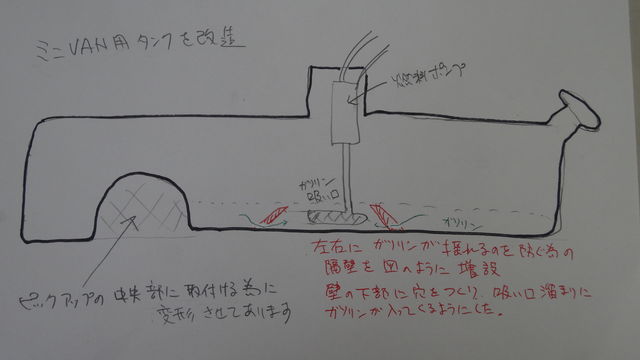 ミニVAN用タンクを改造
燃料ポンプ
ガソリン
吸い口
ガソリン
左右にガソリンが揺れるのを防ぐ為の
隔壁を図のように増設
壁の下部に穴をつくり、吸い口溜まりに
ガソリンが入ってくるようにした。
ピックアップの中央部に取付ける為に
変形させてあります